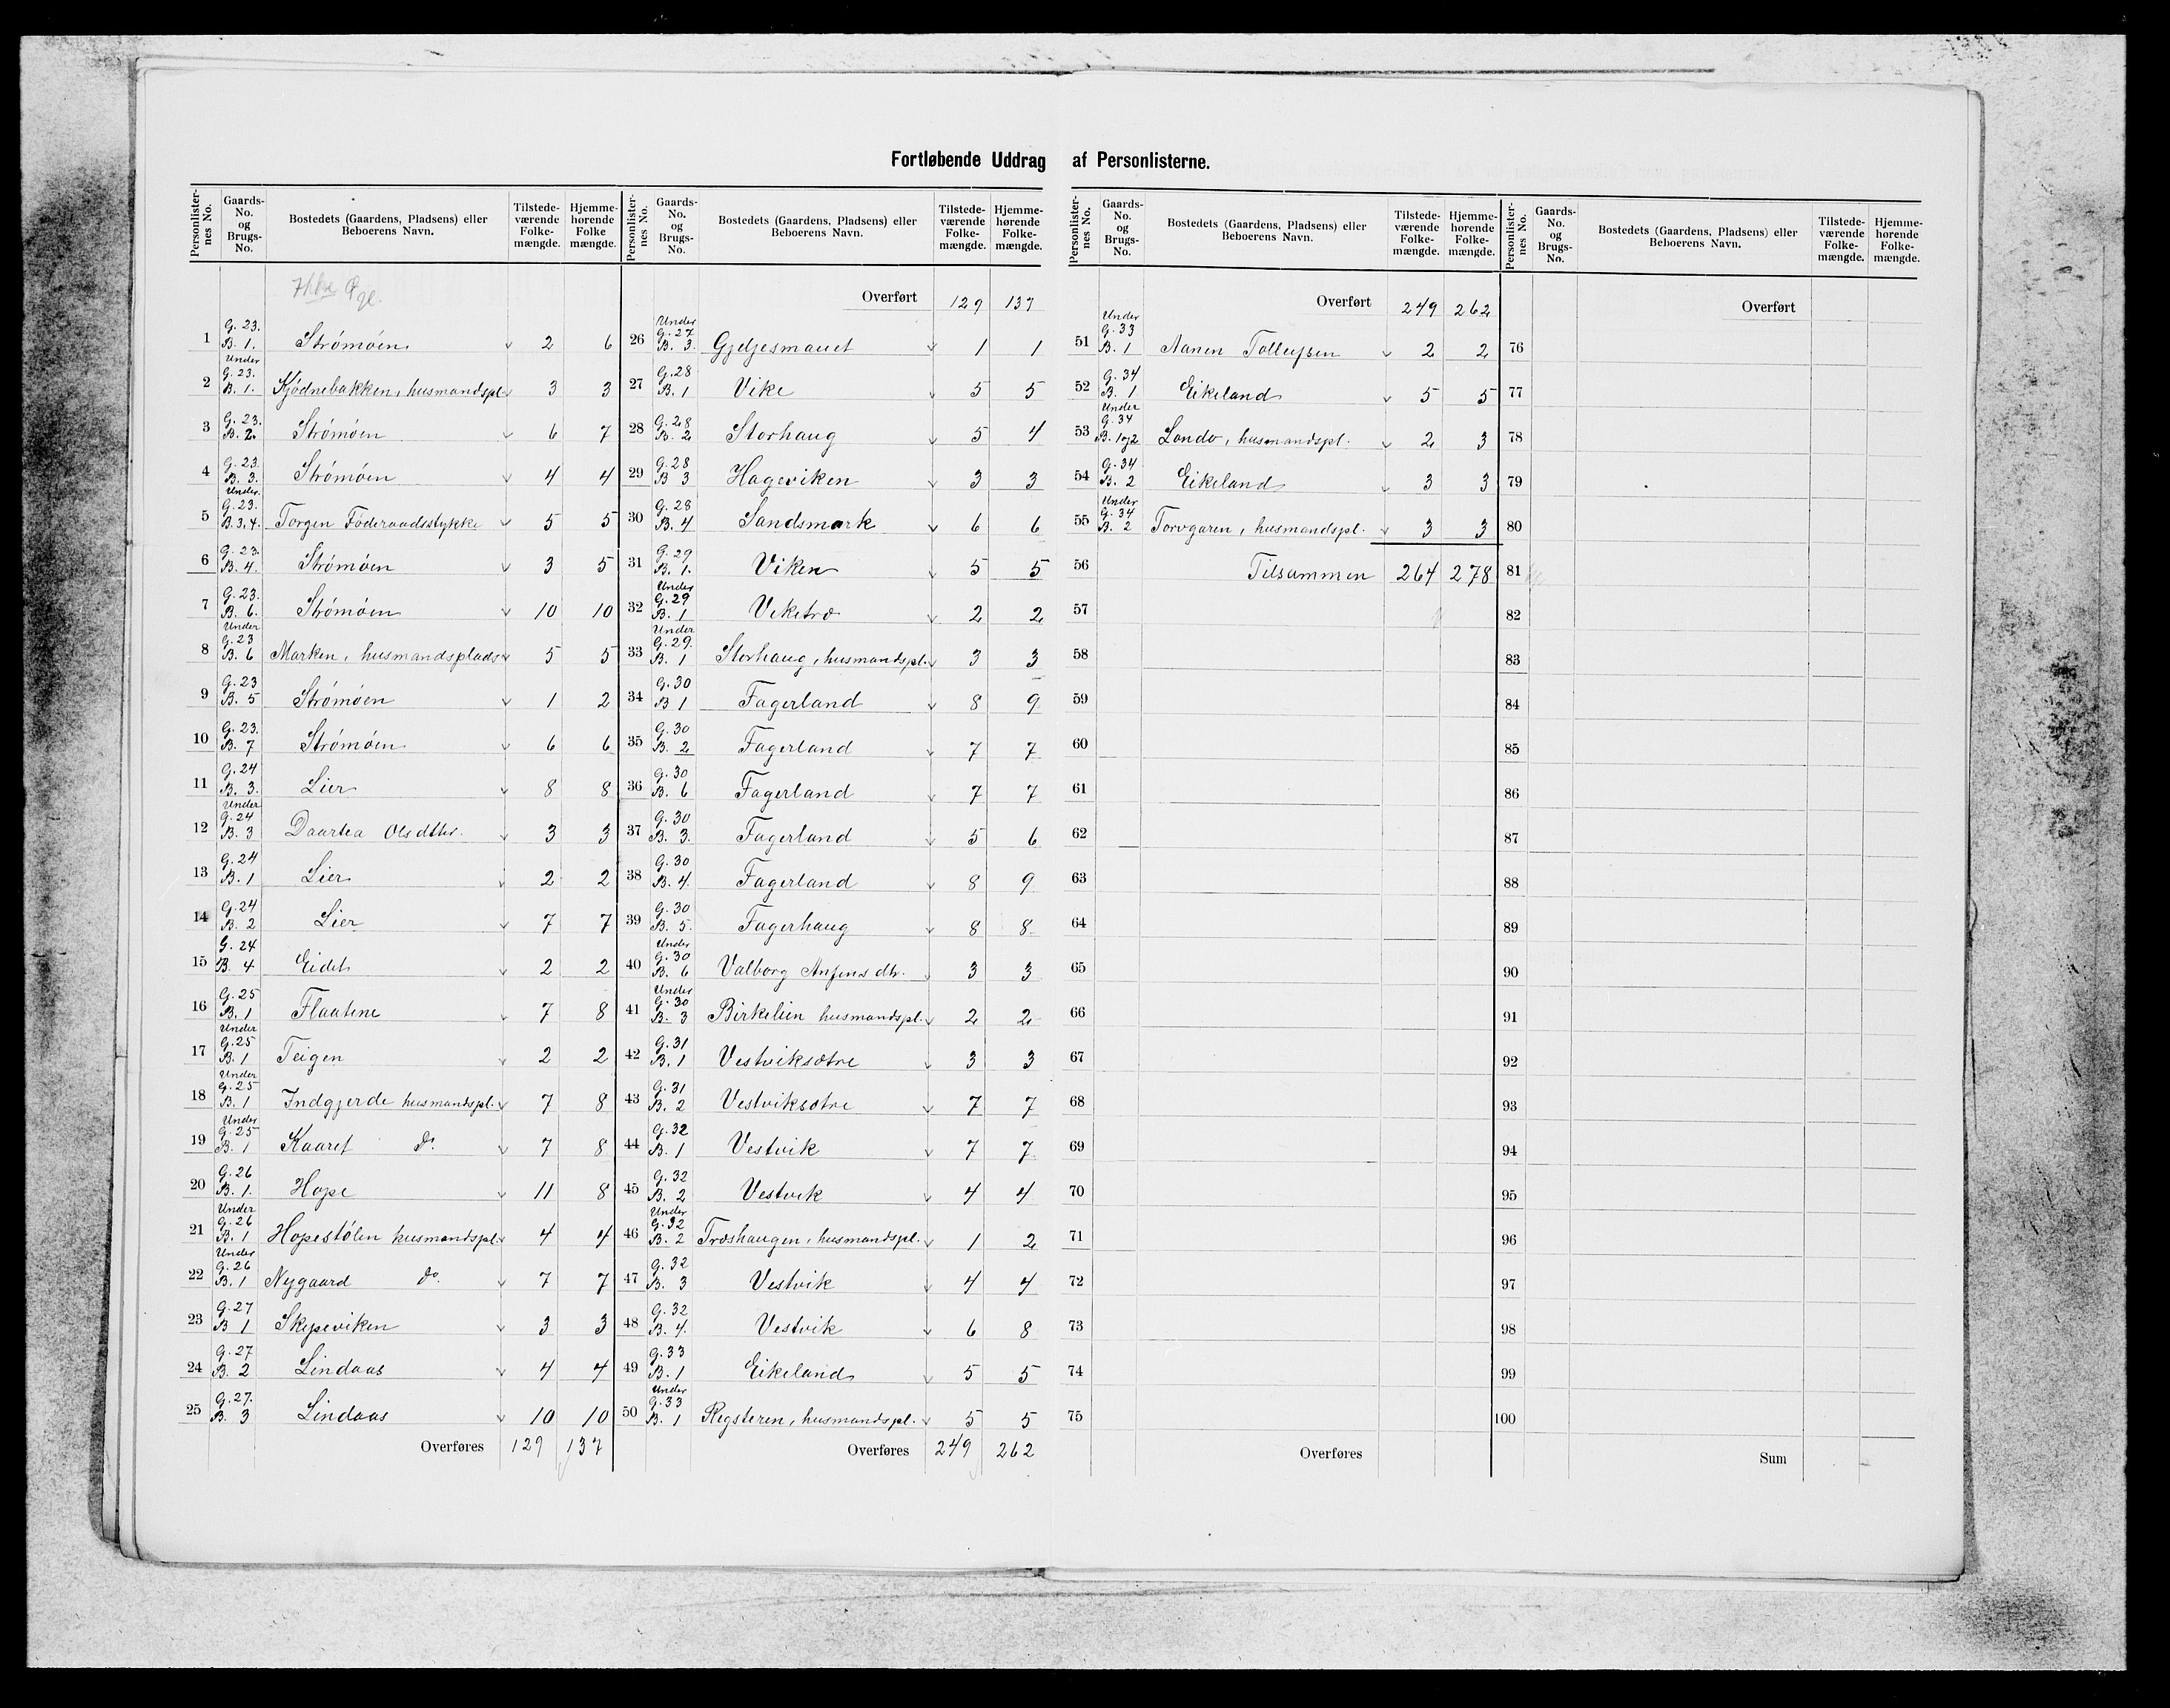 Fortløbende Uddrag af Personlisterne.
Personlisternes No. | Gaards-No. og Brugs-No. | Bostedets (Gaardens, Pladsens) eller Beboerens Navn. | Tilstedeværende Folkemængde. | Hjemmehørende Folkemængde.
1 G. 23. B. 1. Strømøen 2 6
2 Under G. 23. B. 1. Kjødnebakken, husmandspl. 3 3
3 G. 23. B. 2. Strømøen 6 7
4 G. 23. B. 3. Strømøen 4 4
5 Under G. 23. B. 3, 4. Torgen Föderaadsstykke 5 5
6 G. 23. B. 4. Strømøen 3 5
7 G. 23. B. 6. Strømøen 10 10
8 Under G. 23 B. 6 Marken, husmandsplads 5 5
9 G. 23 B. 5 Strømøen 1 2
10 G. 23. B. 7 Strømøen 6 6
11 G. 24 B. 3. Lier 8 8
12 Under G. 24 B. 3 Daartea Olsdttr. 3 3
13 G. 24 B. 1 Lier 2 2
14 G. 24 B. 2 Lier 7 7
15 G. 24 B. 4 Eidet 2 2
16 G. 25 B. 1 Flaatene 7 8
17 Under G. 25 B. 1 Teigen 2 2
18 Under G. 25 B. 1 Indgjerde husmandspl. 7 8
19 Under G. 25 B. 1 Kaaret do. 7 8
20 G. 26 B. 1. Hope 11 8
21 Under G. 26 B. 1 Hopestølen husmandspl. 4 4
22 Under G. 26 B. 1 Nygaard do. 7 7
23 G. 27 B 1 Skjpeviken 3 3
24 G. 27 B. 2 Lindaas 4 4
25 G. 27. B. 3 Lindaas 10 10
Overføres 129 137
Personlisternes No. | Gaards-No. og Brugs-No. | Bostedets (Gaardens, Pladsens) eller Beboerens Navn. | Tilstedeværende Folkemængde. | Hjemmehørende Folkemængde.
Overført 129 137
26 Under G. 27 B. 3. Gjeljesmauet 1 1
27 G. 28 B. 1 Vike 5 5
28 G. 28 B. 2 Storhaug 5 4
29 G. 28 B 3 Hageviken 3 3
30 G. 28 B. 4 Sandsmark 6 6
31 G. 29 B. 1. Viken 5 5
32 Under G. 29 B. 1 Viketræ 2 2
33 Under G. 29. B. 1 Storhaug, husmandspl. 3 3
34 G. 30 B 1 Fagerland 8 9
35 G. 30 B. 2 Fagerland 7 7
36 G. 30 B. 6 Fagerland 7 7
37 G. 30 B. 3. Fagerland 5 6
38 G. 30 B. 4. Fagerland 8 9
39 G. 30 B. 5. Fagerhaug 8 8
40 Under G. 30 B. 6 Valborg Anfinsdtr. 3 3
41 Under G. 30 B. 3 Birkelien husmandspl. 2 2
42 G. 31 B. 1 Vestviksætre 3 3
43 G. 31 B. 2 Vestviksætre 7 7
44 G. 32 B. 1 Vestvik 7 7
45 G. 32 B. 2 Vestvik 4 4
46 Under G. 32 B. 2 Træshaugen, husmandspl. 1 2
47 G. 32 B. 3 Vestvik 4 4
48 G. 32 B. 4. Vestvik 6 8
49 G. 33 B. 1 Eikeland 5 5
50 Under G. 33 B. 1 Regsteren, husmandspl. 5 5
Overføres 249 262
Personlisternes No. | Gaards-No. og Brugs-No. | Bostedets (Gaardens, Pladsens) eller Beboerens Navn. | Tilstedeværende Folkemængde. | Hjemmehørende Folkemængde.
Overført 249 262
51 Under G. 33 B. 1 Nanen Tollefsen 2 2
52 G. 34 B. 1 Eikeland 5 5
53 Under G. 34 B. 1og2 Londo, husmandspl. 2 3
54 G. 34 B. 2 Eikeland 3 3
55 Under G. 34 B. 2 Torvgaren, husmandspl. 3 3
56 Tilsammen 264 278
57
58
59
60
61
62
63
64
65
66
67
68
69
70
71
72
73
74
75
Overføres
Personlisternes No. | Gaards-No. og Brugs-No. | Bostedets (Gaardens, Pladsens) eller Beboerens Navn. | Tilstedeværende Folkemængde. | Hjemmehørende Folkemængde.
Overført
76
77
78
79
80
81
82
83
84
85
86
87
88
89
90
91
92
93
94
95
96
97
98
99
100
Sum